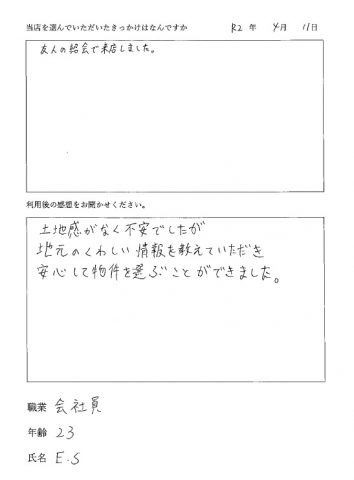 当店を選んでいただいたきっかけはなんですか R2 年 4月 11日
友人の紹介で来店しました。
利用後の感想をお聞かせください。
土地感がなく不安でしたが
地元のくわしい情報を教えていただき
安心して物件を選ぶことができました。
職業 会社員
年齢 23
氏名 E.S